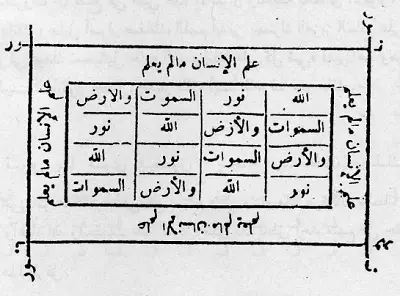 علم الإنسان مالم يعلم
الله نور السموت والارض
السموات والأرض الله نور
والأرض السموات نور الله
نور الله والأرض السموات
علم الإنسان مالم يعلم
علم الإنسان مالم يعلم
علم الإنسان مالم يعلم